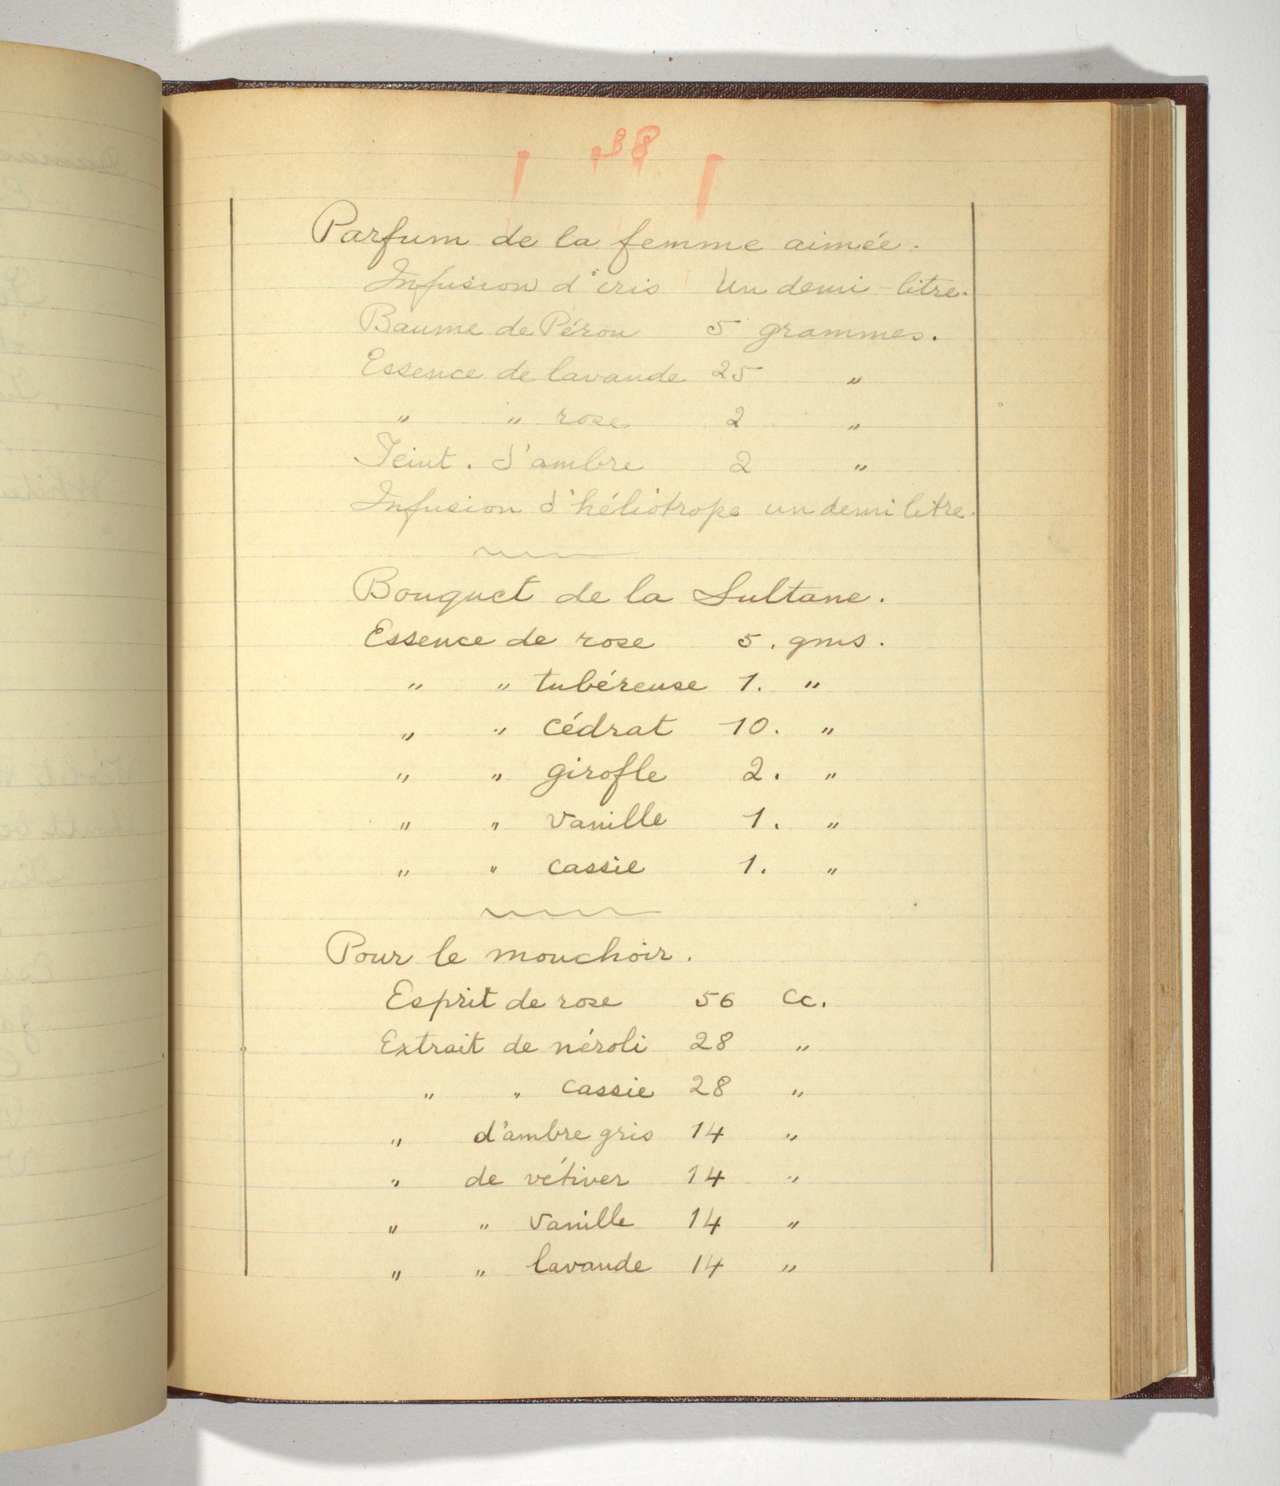 38
Parfum de la femme aimée.
Infusion d'iris Un demi-litre.
Baume de Pérou 5 grammes.
Essence de lavande 25 "
" " rose 2 "
Teint. d'ambre 2 "
Infusion d'héliotrope un demi litre.
Bouquet de la Sultane.
Essence de rose 5. gms.
" " tubéreuse 1. "
" " cédrat 10. "
" " girofle 2. "
" " vanille 1. "
" " cassie 1. "
Pour le mouchoir.
Esprit de rose 56 cc.
Extrait de néroli 28 "
" " cassie 28 "
" d'ambre gris 14 "
" de vétiver 14 "
" " vanille 14 "
" " lavande 14 "